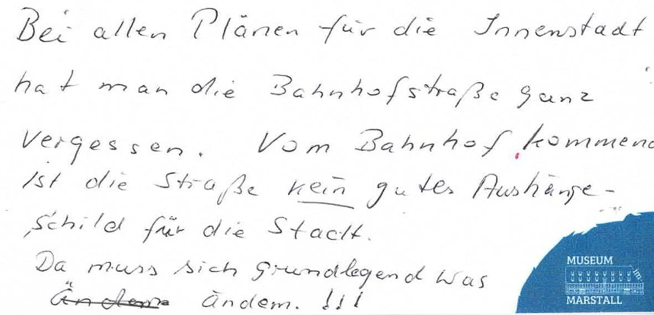 Bei allen Plänen für die Innenstadt
hat man die Bahnhofstraße ganz
vergessen. Vom Bahnhof kommend
ist die Straße kein gutes Aushänge-
schild für die Stadt.
Da muss sich grundlegend was
Ändern ändern. !!!
MUSEUM
MARSTALL